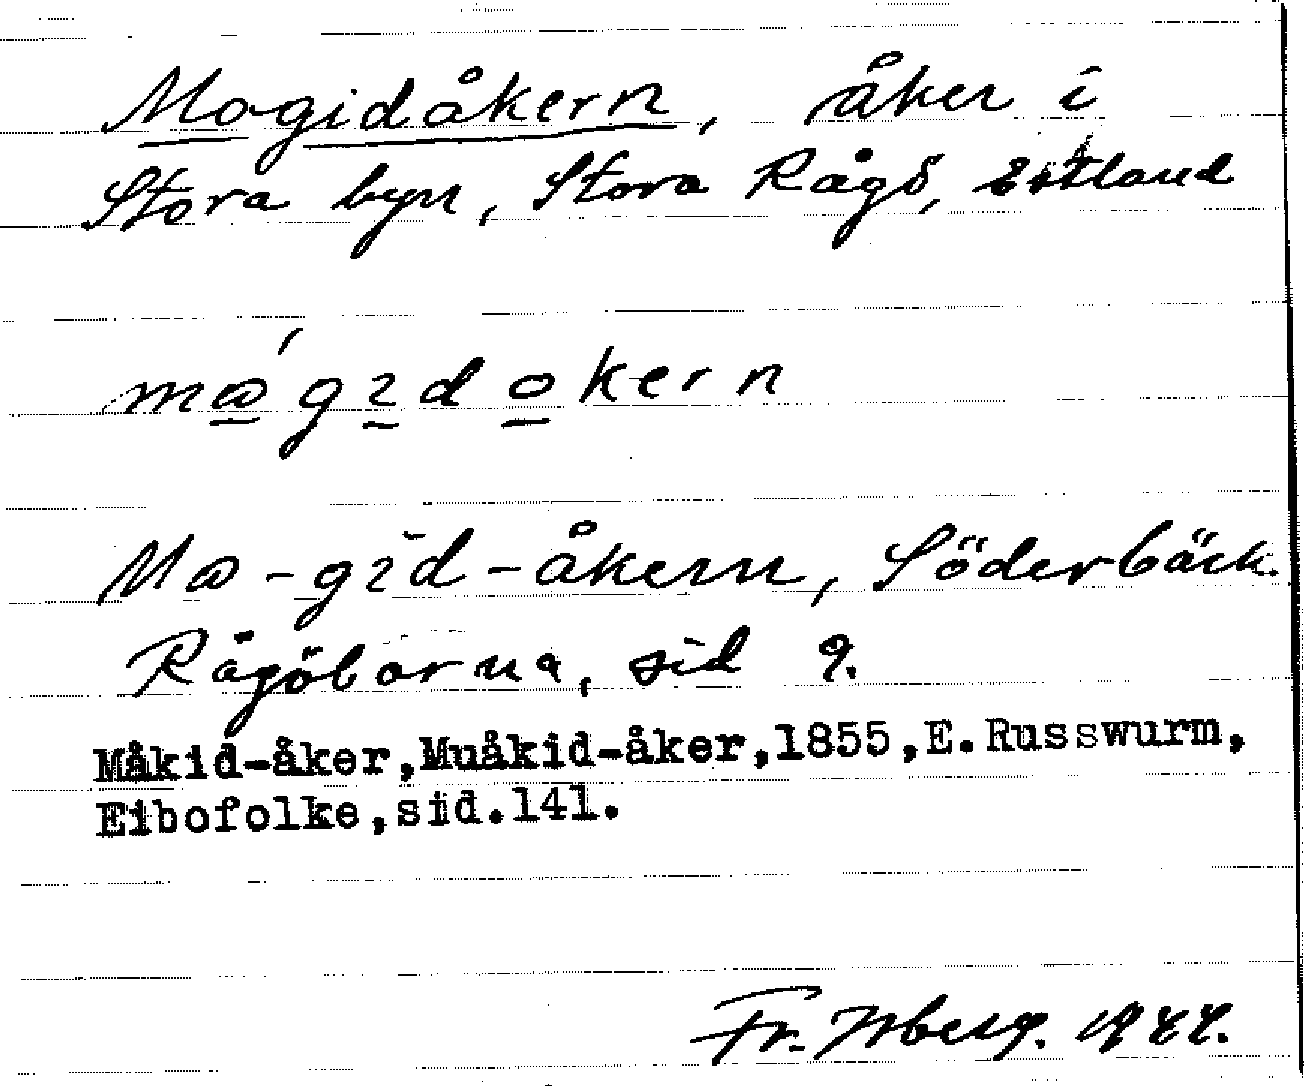 Mogidåkern, åker i
Stora byn, Stora Rågö, Estland
mǿgıdokern
Mø-gĭd-åkern, Söderbäck.
Rågöborna, sid 9.
Måkid-åker,Muåkid-åker,1855,E.Russwurm,
Eibofolke,sid.141.
Fr. 1944.